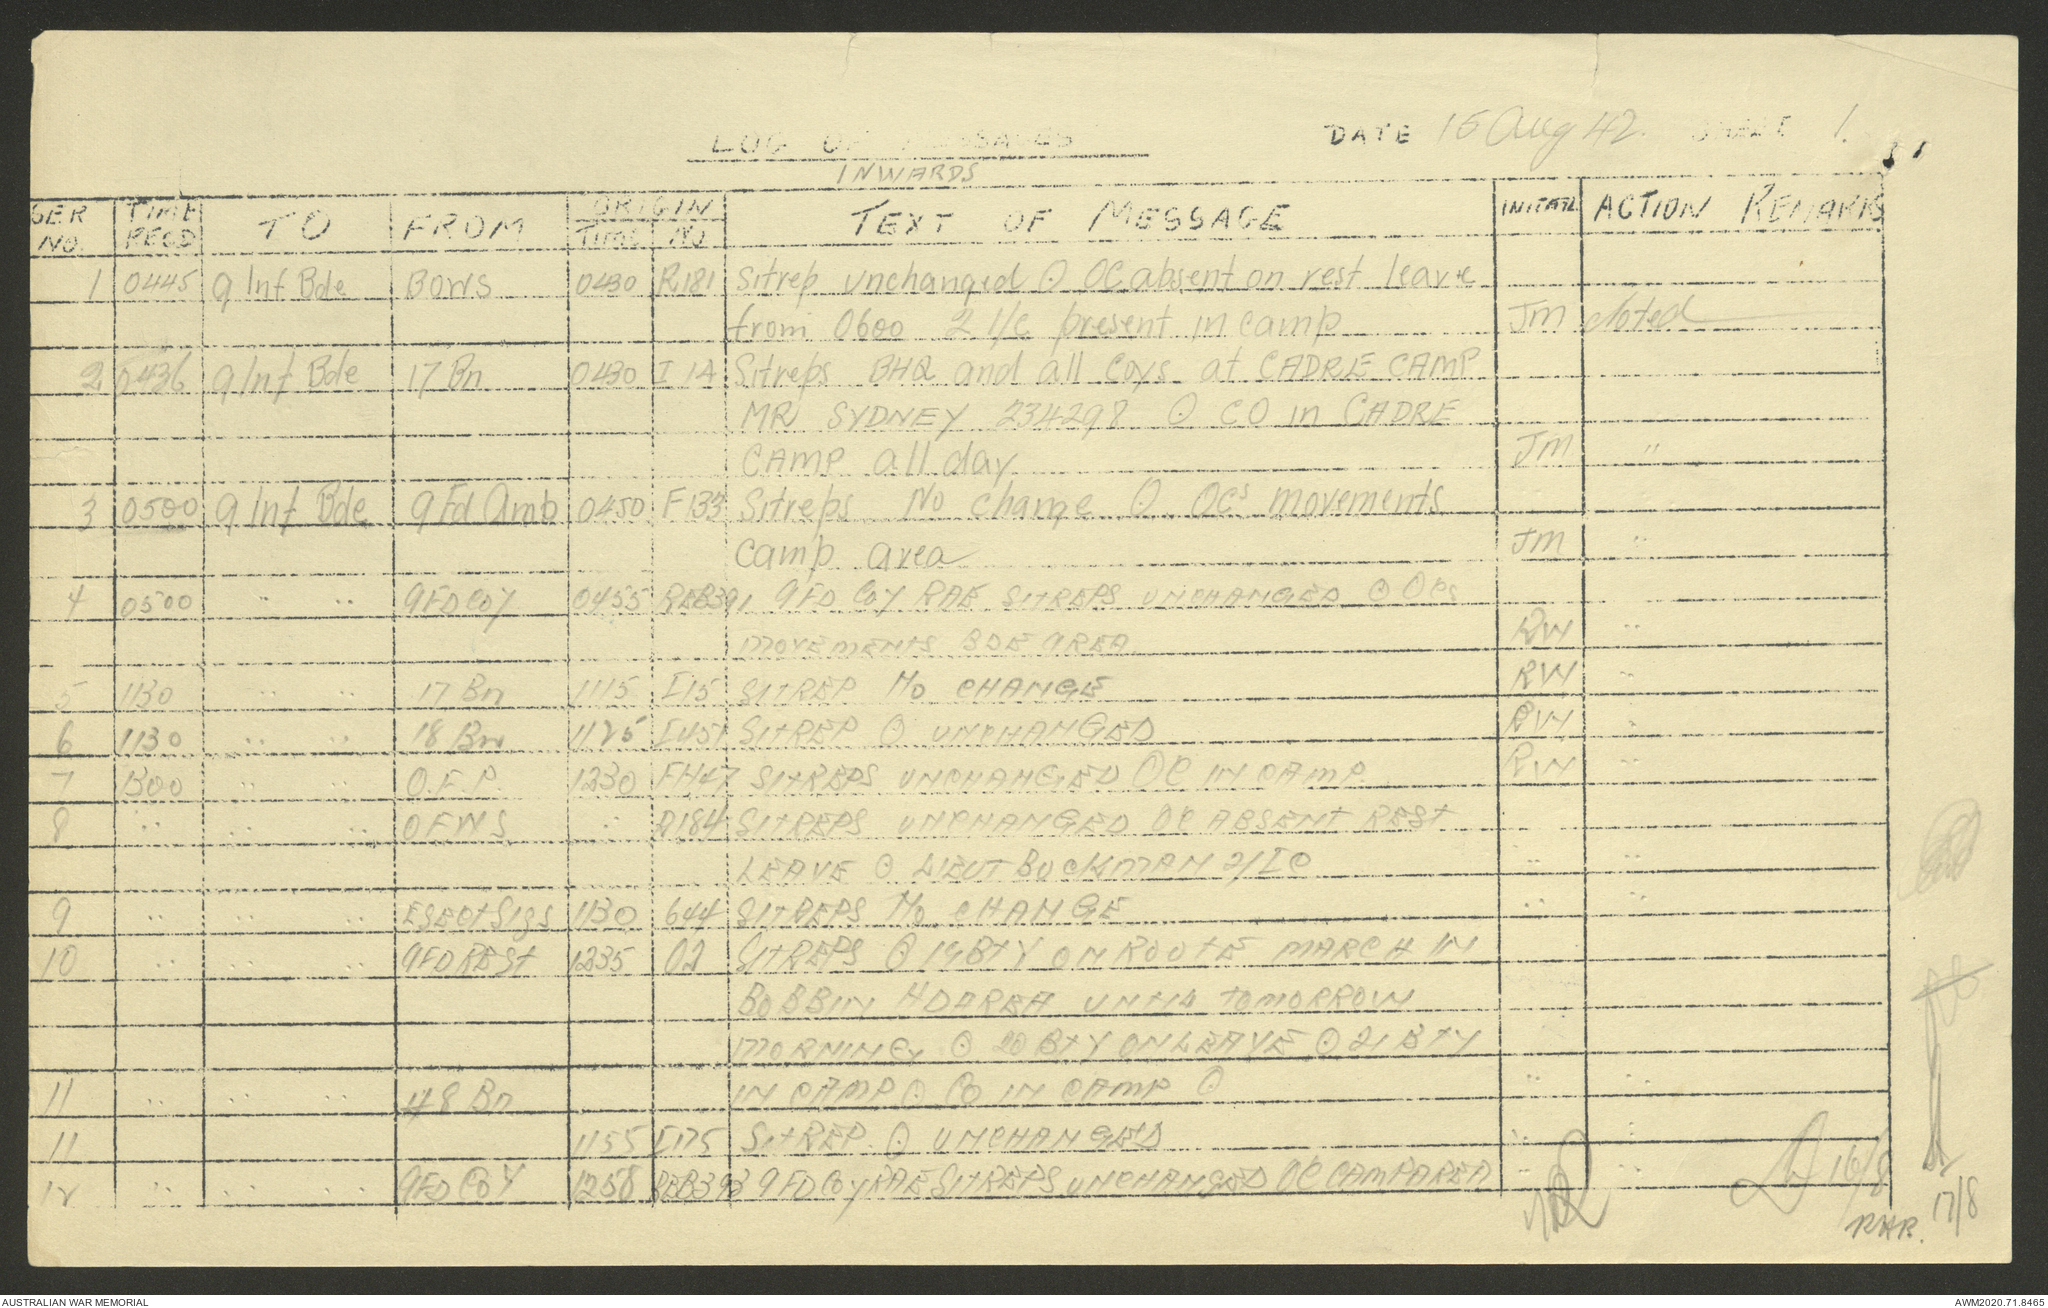 LOG OF MESSAGES DATE 16 Aug 42. SHEET 1.
INWARDS
SER NO. TIME RECD TO FROM ORIGIN TIME NO TEXT OF MESSAGE INITIAL ACTION REMARKS
1 0445 9 Inf Bde BOWS 0430 R181 Sitrep unchanged ⊙ OC absent on rest leave
from 0600 2 I/C present in camp JM Noted
2 0436 9 Inf Bde 17 Bn 0430 I 14 Sitreps BHQ and all Coys at CADRE CAMP
MR SYDNEY 234298 ⊙ CO in CADRE
CAMP all day JM "
3 0500 9 Inf Bde 9 Fd Amb 0450 F133 Sitreps No change ⊙ OCs movements
camp area JM "
4 0500 " " 9 FD COY 0455 REB391 9 FD COY RAE SITREPS UNCHANGED ⊙ OCs
MOVEMENTS BDE AREA RW "
5 1130 " " 17 Bn 1115 I15 SITREP NO CHANGE RW "
6 1130 " " 18 Bn 1125 I451 SITREP ⊙ UNCHANGED RW "
7 1300 " " O.F.P. 1230 FH47 SITREPS UNCHANGED OC IN CAMP RW "
8 " " " OFWS " R184 SITREPS UNCHANGED OC ABSENT REST
LEAVE ⊙ LIEUT BUCKMAN 2/IC " "
9 " " " Sigs 1130 644 SITREPS NO CHANGE " "
10 " " " 9 FD REGT 1235 O2 SITREPS ⊙ 19 BTY ON ROUTE MARCH IN
BOBBIN HD AREA UNTIL TOMORROW
MORNING ⊙ 20 BTY ON LEAVE ⊙ 21 BTY
IN CAMP ⊙ CO IN CAMP ⊙ " "
11 " " " 48 Bn
11 1155 I175 SITREP ⊙ UNCHANGED " "
12 " " " 9 FD COY 1258 REB393 9 FD COY RAE SITREPS UNCHANGED OC CAMP AREA " "
16/8
17/8
RHR.
AUSTRALIAN WAR MEMORIAL AWM2020.71.8465